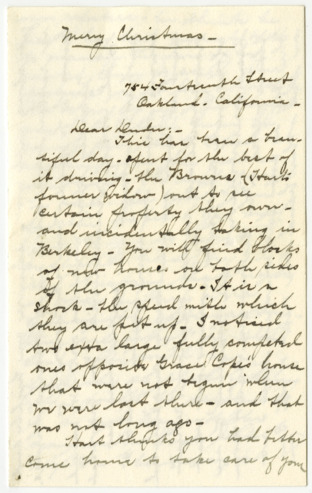 Merry Christmas -
754 Fourteenth Street
Oakland - California -
Dear Dudu; -
This has been a beau-
tiful day - spent for the best of
it driving - the Browns (Hart's
former widow) out to see
certain property they own -
and incidentally taking in
Berkeley - You will find blocks
of new houses on both sides
of the grounds - It is a
shock - the speed with which
they are put up - I noticed
two extra large fully completed
ones opposite Grace Cope's house
that were not begun when
we were last there - and that
was not long ago -
Hart thinks you had better
come home to take care of your